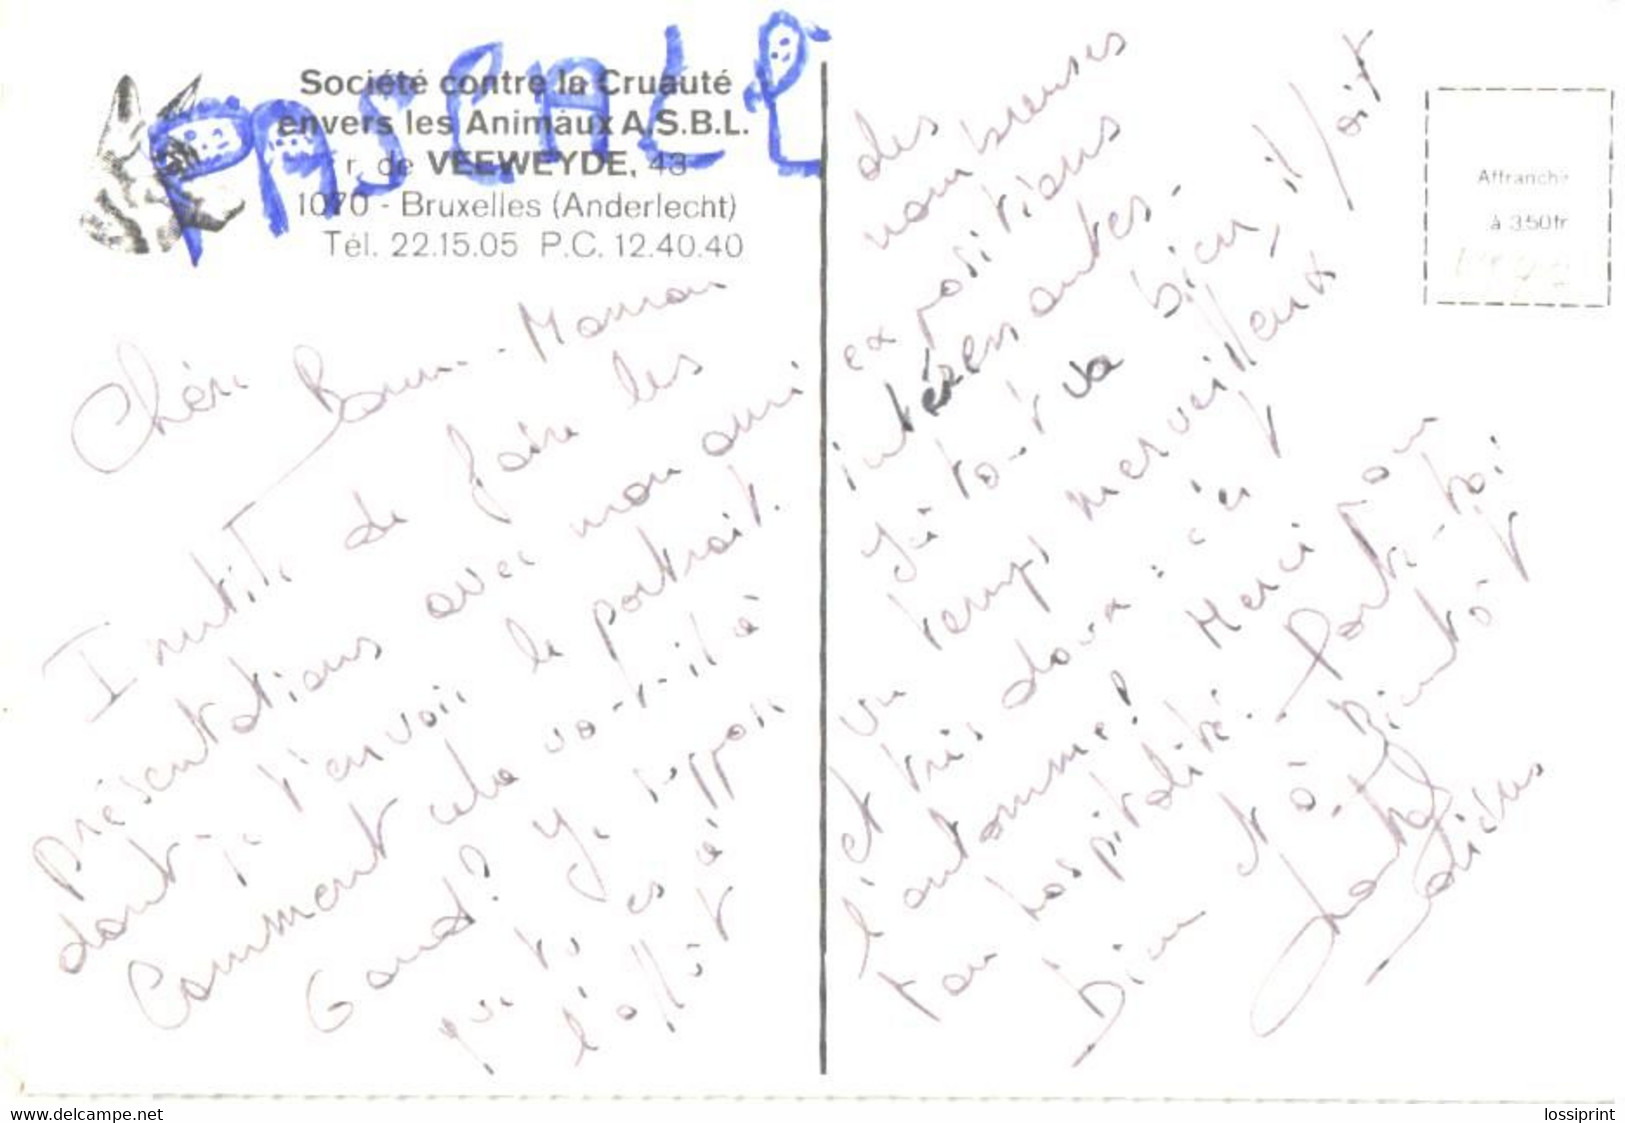 PASCALE
Société contre la Cruauté
envers les Animaux A.S.B.L.
r. de VEEWEYDE, 43
1070 - Bruxelles (Anderlecht)
Tél. 22.15.05 P.C. 12.40.40
Chère Bonne-Maman
Inutile de faire les
présentations avec mon ami
dont je t'envoie le portrait.
Comment cela va-t-il à
Gand? Je suppose
que tu es à
l'affût
des
nombreuses
expositions
intéressantes.
Ici tout va bien, il fait
un temps merveilleux
et très doux : c'est
l'automne! Merci pour
ton hospitalité. Porte-toi
bien et à bientôt
Affranchir
à 3.50fr
www.delcampe.net
lossiprint